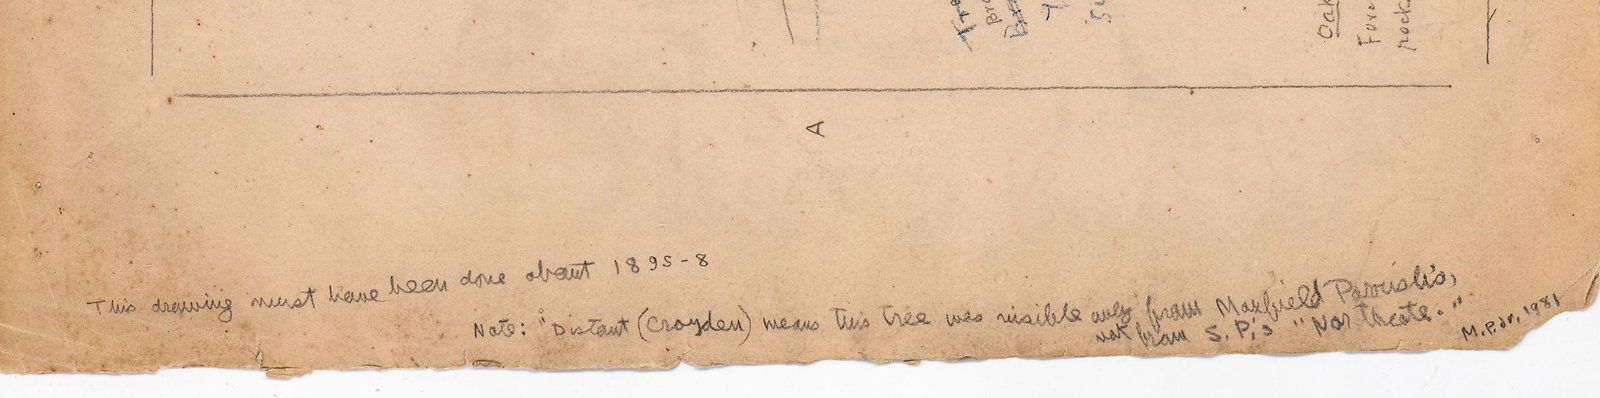 Oak
A
This drawing must have been done about 1895-8
Note: "Distant (Croyden) means this tree was visible only from Maxfield Parrish's,
not from S.P.'s "Northcote."
M.P. Jr., 1981